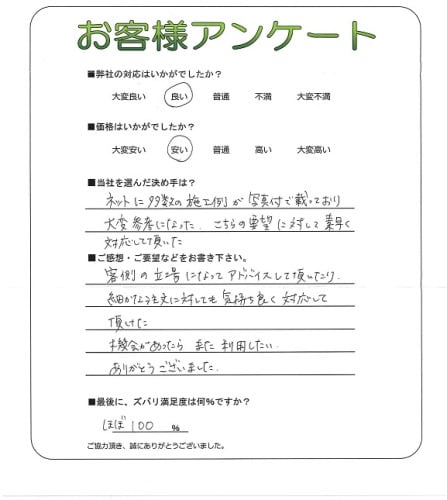 お客様アンケート
■弊社の対応はいかがでしたか?
大変良い 良い 普通 不満 大変不満
■価格はいかがでしたか?
大変安い 安い 普通 高い 大変高い
■当社を選んだ決め手は?
ネットに多数の施工例が写真付で載っており
大変参考になった。こちらの要望に対して素早く
対応して頂いた
■ご感想・ご要望などをお書き下さい。
客側の立場になってアドバイスして頂いたり、
細かなる注文に対しても気持ち良く対応して
頂けた
機会があったらまた利用したい。
ありがとうございました。
■最後に、ズバリ満足度は何%ですか?
ほぼ 100 %
ご協力頂き、誠にありがとうございました。